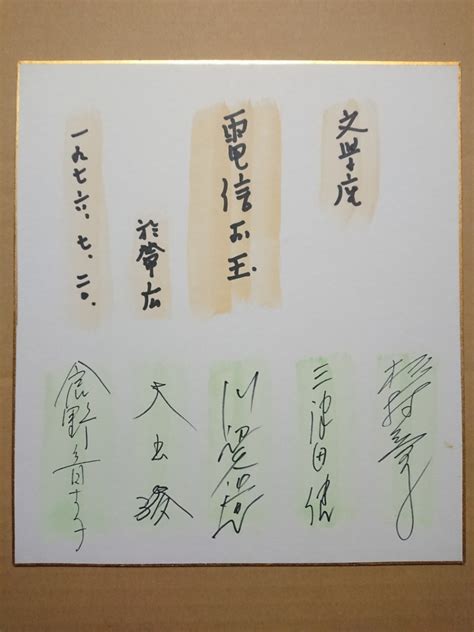 文學座
電信お玉
於帯広
一九七六、七、二〇、
杉村春子
三津田健
川辺久造
大出俊
倉野章子